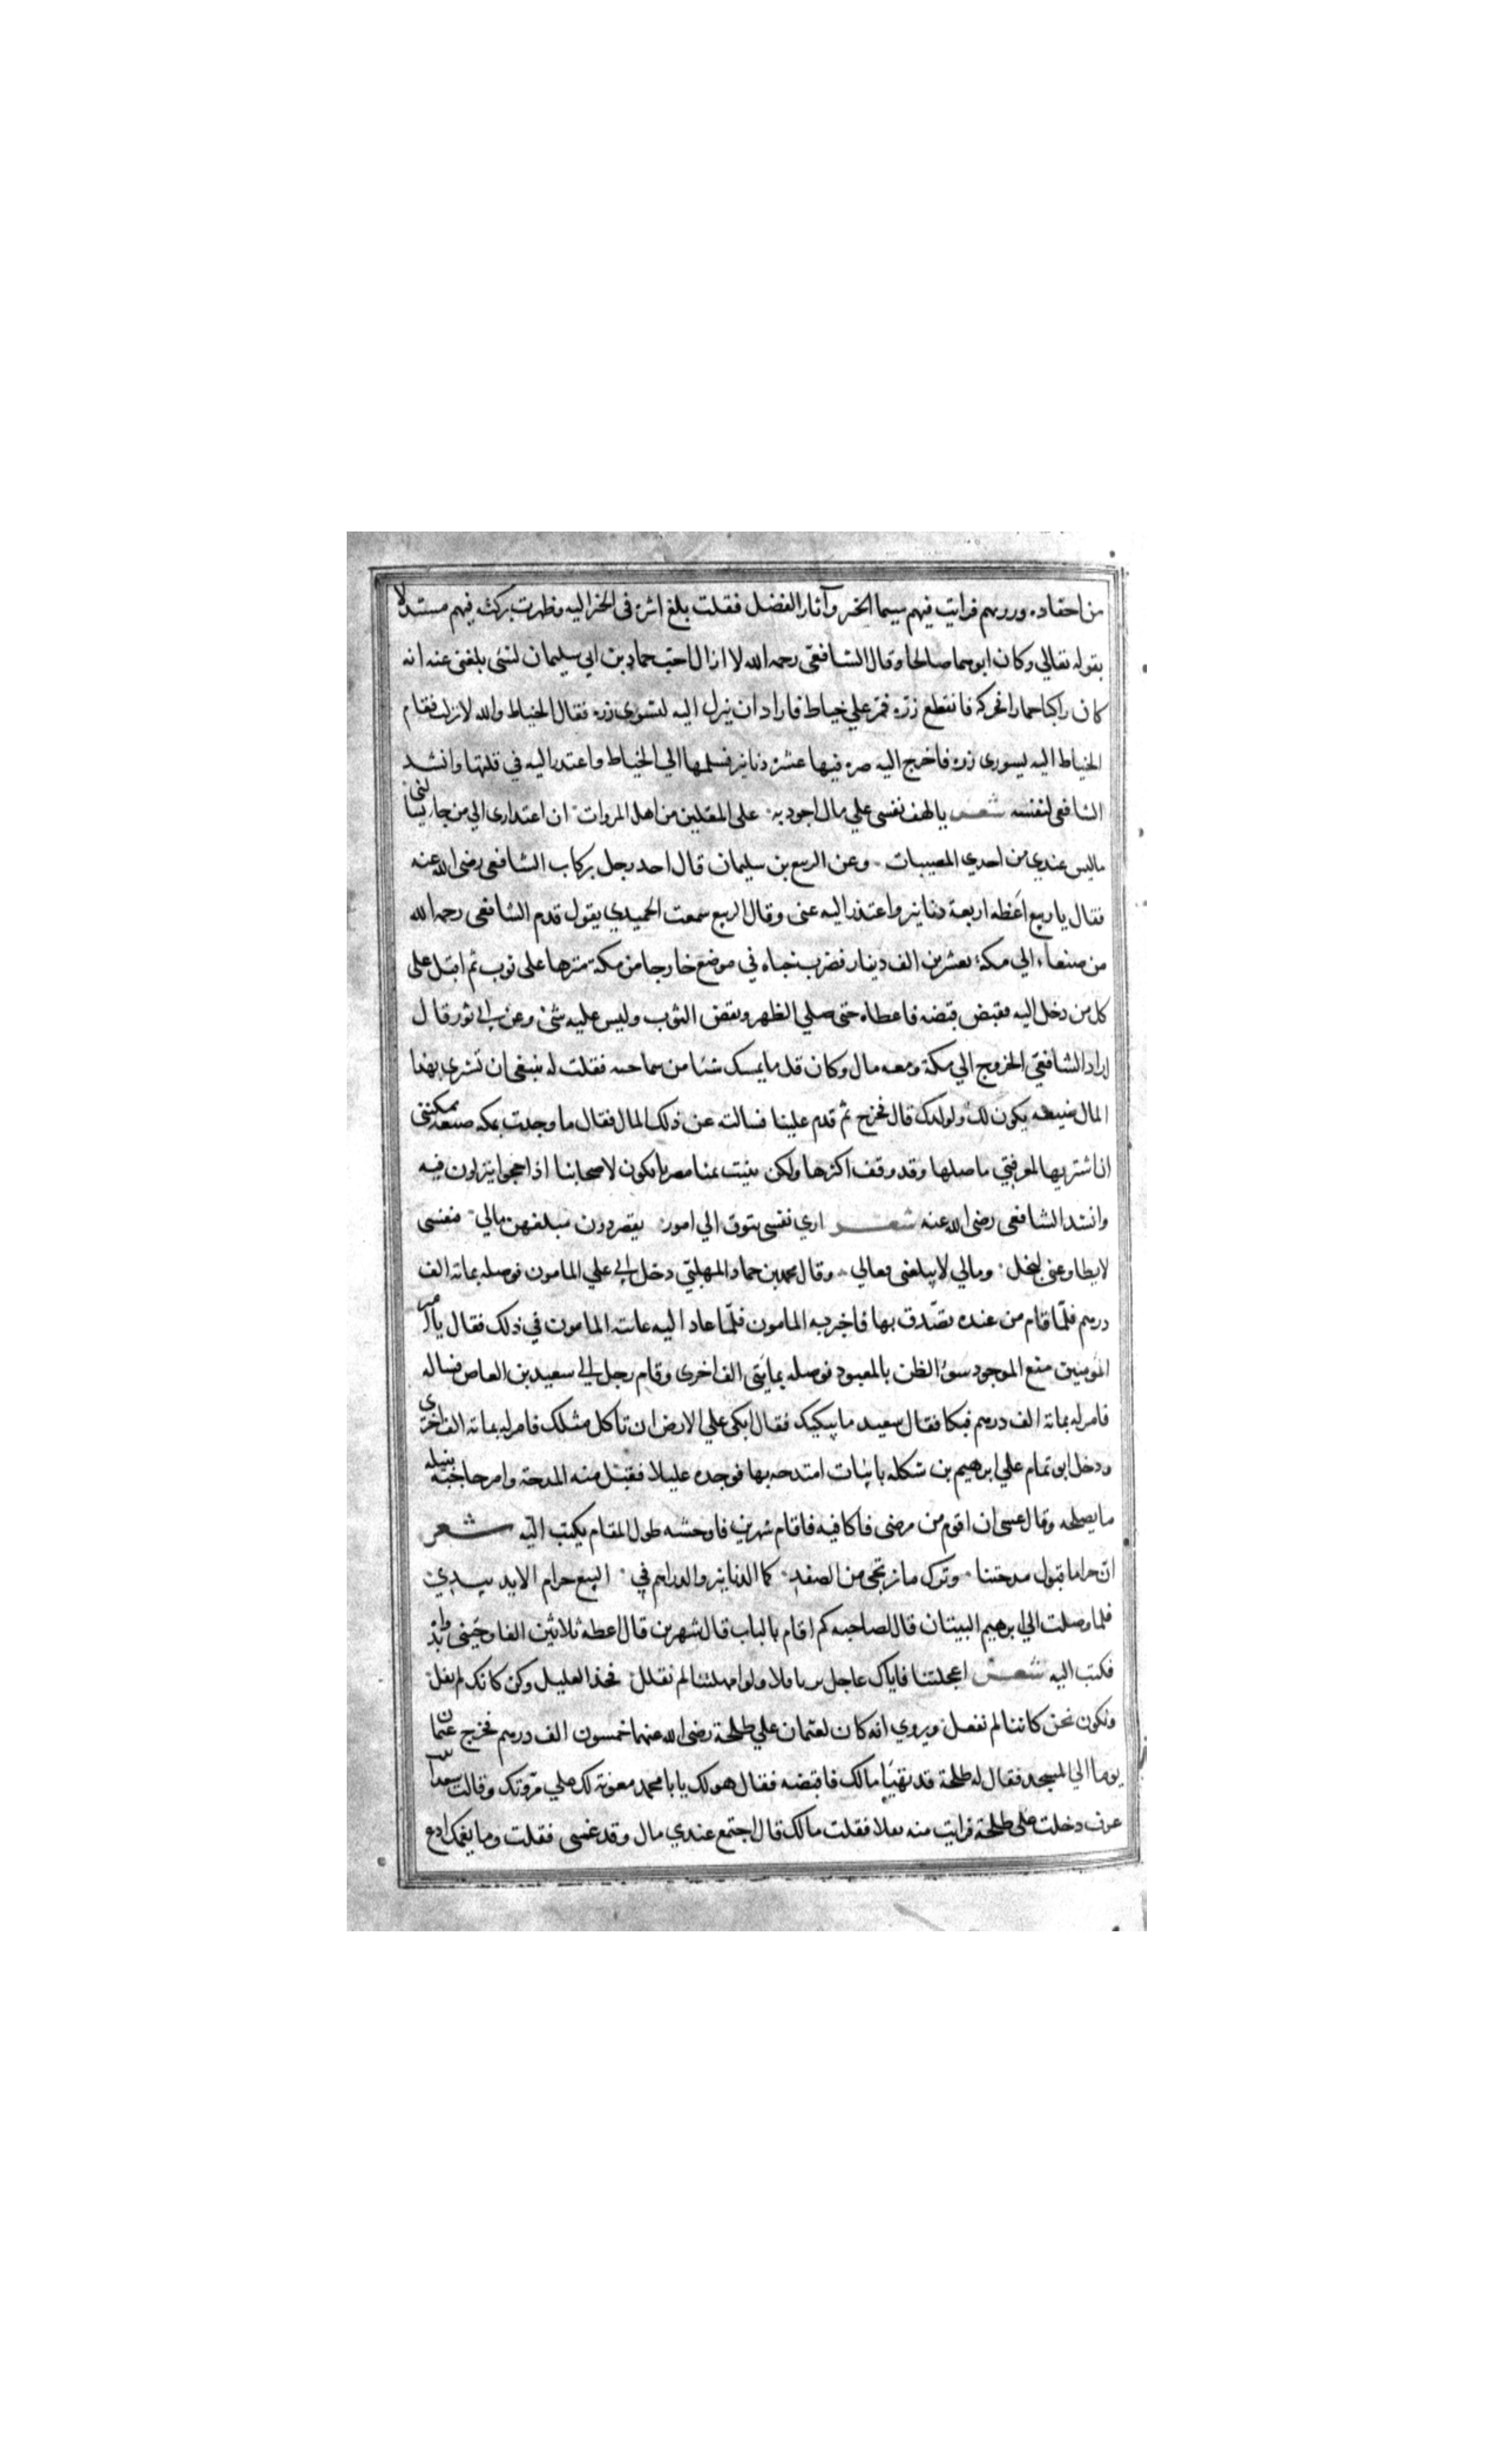 من احفاده وردهم فرايت فيهم سيما الخير وآثار الفضل فقلت بلغ اثره في الخير اليه وظهرت بركته فيهم مستدلا
بقوله تعالي وكان ابوهما صالحا وقال الشافعي رحمه الله لا ازال احب حماد بن ابي سليمان لشئ بلغني عنه انه
كان راكبا حمارا فحركه فانقطع زره فمر علي خياط فاراد ان ينزل اليه ليسوي زره فقال الخياط والله لا نزلت فقام
الخياط اليه يسوري زره فاخرج اليه صره فيها عشرة دنانير فسلمها الي الخياط واعتذر اليه في قلتها وانشد
الشافعي لنفسه شعر يا لهف نفسي علي مال اجود به علي المقلين من اهل المروات ان اعتذاري الي من جا يسالني
ما ليس عندي من احدي المصيبات وعن الربيع بن سليمان قال اخد رجل بركاب الشافعي رضي الله عنه
فقال يا ربيع اعطه اربعة دنانير واعتذر اليه عني وقال الربيع سمعت الحميدي يقول قدم الشافعي رحمه الله
من صنعاء الي مكة بعشرين الف دينار فضرب خباه في موضع خارجا من مكة نثرها علي ثوب ثم اقبل علي
كل من دخل اليه فقبض قبضه فاعطاه حتي صلي الظهر ونفض الثوب وليس عليه شئ وعن ابي ثور قال
اراد الشافعي الخروج الي مكة ومعه مال وكان قل ما يمسك شئا من سماحته فقلت له ينبغي ان تشري بهذا
المال ضيعه يكون لك ولولدك قال فخرج ثم قدم علينا فسالته عن ذلك المال فقال ما وجدت بمكه ضيعه يمكنني
ان اشتريها لمعرفتي باصلها وقد وقف اكثرها ولكن بنيت بمنا مضربا يكون لاصحابنا اذا حجوا ينزلون فيه
وانشد الشافعي رضي الله عنه شعر اري نفسي تتوق الي امور يقصر دون مبلغهن مالي فنفسي
لا يطاوعني لبخل ومالي لا يبلغني فعالي وقال محمد بن حماد المهلبي دخل ابي علي المامون فوصله بمائة الف
درهم فلما قام من عنده تصدق بها فاخبر به المامون فلما عاد اليه عاتبه المامون في ذلك فقال يا امير
المؤمنين منع الموجود سوء الظن بالمعبود فوصله بمائتي الف اخري وقام رجل الي سعيد بن العاص فساله
فامر له بمائة الف درهم فبكا فقال سعيد ما يبكيك فقال ابكي علي الارض ان تاكل مثلك فامر له بمائة الف اخري
ودخل ابو تمام علي ابرهيم بن شكله بابيات امتدحه بها فوجده عليلا فقبل منه المدحة وامر حاجبه بنيله
ما يصلحه وقال عسي ان اقوم من مرضي فاكافيه فاقام شهرين فاوحشه طول المقام يكتب اليه شعر
ان حراما قبول مدحتنا وترك ما نرتجي من الصفد كما الدنانير والدراهم في البيع حرام الا يد بيد
فلما وصلت الي ابرهيم البيتان قال لصاحبه كم اقام بالباب قال شهرين قال اعطه ثلاثين الفا وجئني بدواة
فكتب اليه شعر اعجلتنا فاتاك عاجل برنا قلا ولو امهلتنا لم نقلل فخذ القليل وكن كانك لم تقل
ونكون نحن كاننا لم نفعل ويروي انه كان لعثمان علي طلحة رضي الله عنهما خمسون الف درهم فخرج عثمان
يوما الي المسجد فقال له طلحة قد تهيا مالك فاقبضه فقال هو لك يا با محمد معونة لك علي مروتك وقالت سعدا بنت
عوف دخلت علي طلحة فرايت منه ثقلا فقلت مالك قال اجتمع عندي مال وقد غمني فقلت وما يغمك ادع